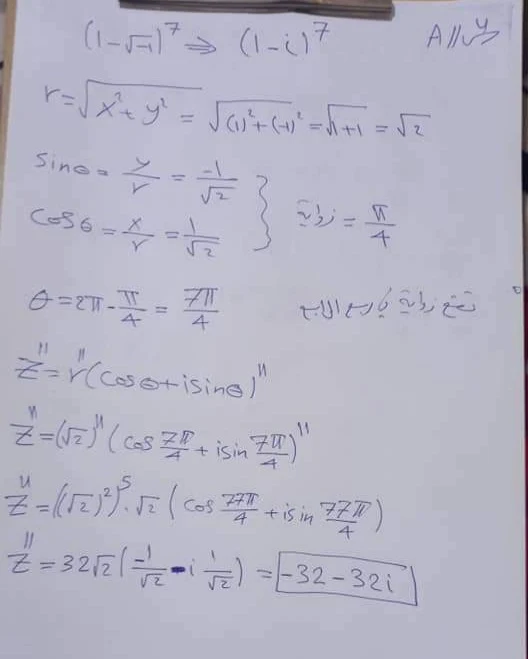 (1-√-1)⁷ ⇒ (1-i)⁷
r = √x²+y² = √(1)²+(-1)² = √1+1 = √2
sinθ = y/r = -1/√2
cosθ = x/r = 1/√2 } زاوية = π/4
θ = 2π - π/4 = 7π/4 تقع زاوية بالربع الرابع
z¹¹ = r¹¹(cosθ+isinθ)¹¹
z¹¹ = (√2)¹¹ (cos 7π/4 + isin 7π/4)¹¹
z¹¹ = ((√2)²)⁵.√2 (cos 77π/4 + isin 77π/4)
z¹¹ = 32√2 (-1/√2 - i 1/√2) = -32-32i